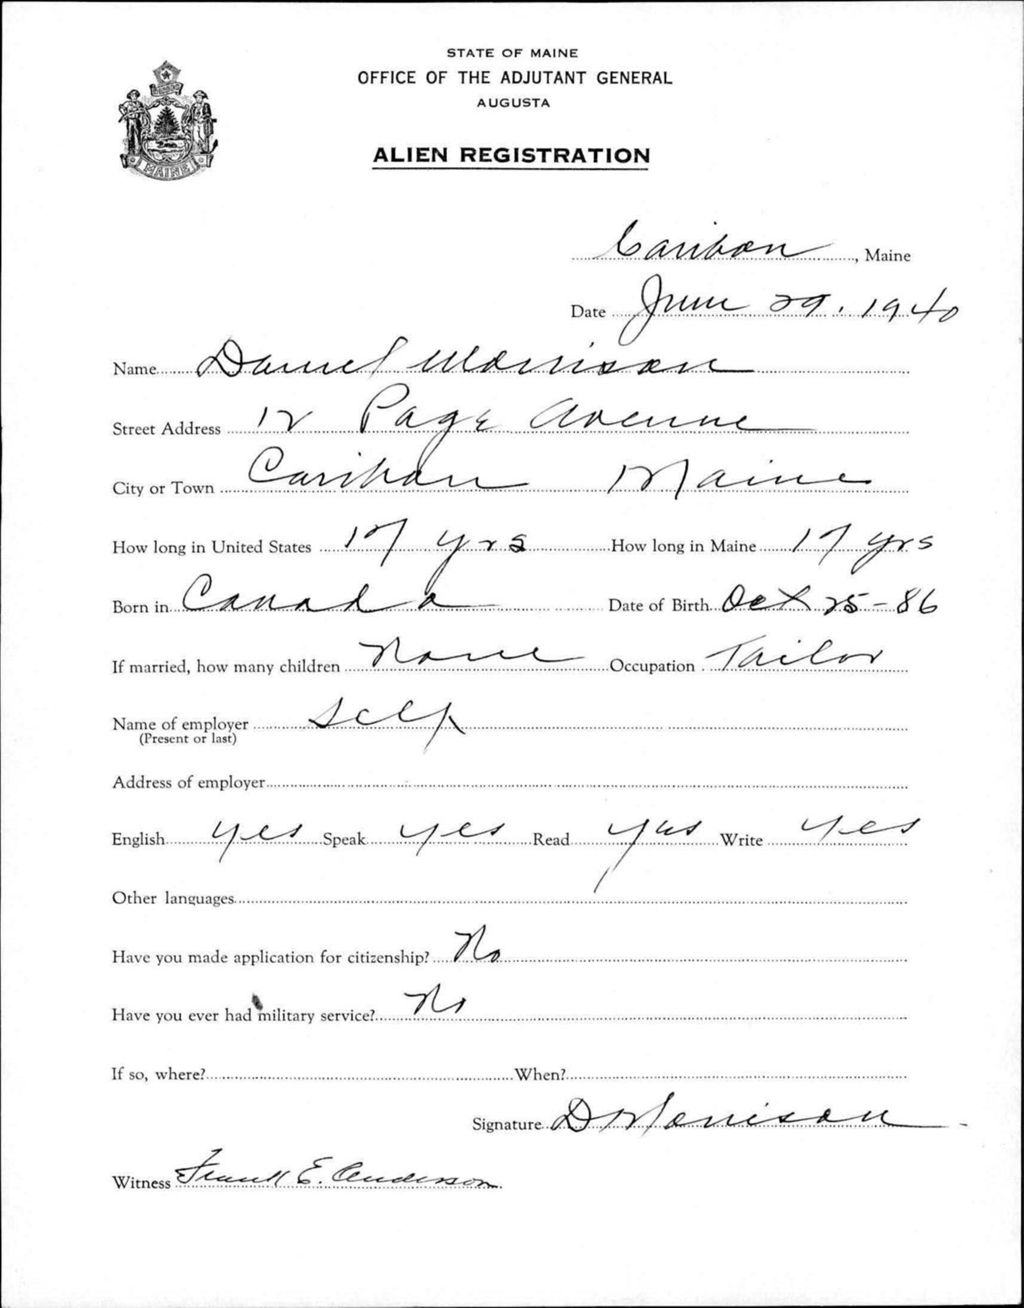 STATE OF MAINE
OFFICE OF THE ADJUTANT GENERAL
AUGUSTA
ALIEN REGISTRATION
MAINE
Caribou, Maine
Date June 29, 1940
Name Daniel Morrison
Street Address 12 Page Avenue
City or Town Caribou Maine
How long in United States 17 yrs How long in Maine 17 yrs
Born in Canada Date of Birth Oct 25-86
If married, how many children None Occupation Tailor
Name of employer Self
(Present or last)
Address of employer
English yes Speak yes Read yes Write yes
Other languages
Have you made application for citizenship? No
Have you ever had military service? No
If so, where? When?
Signature D Morrison
Witness Frank E. Anderson